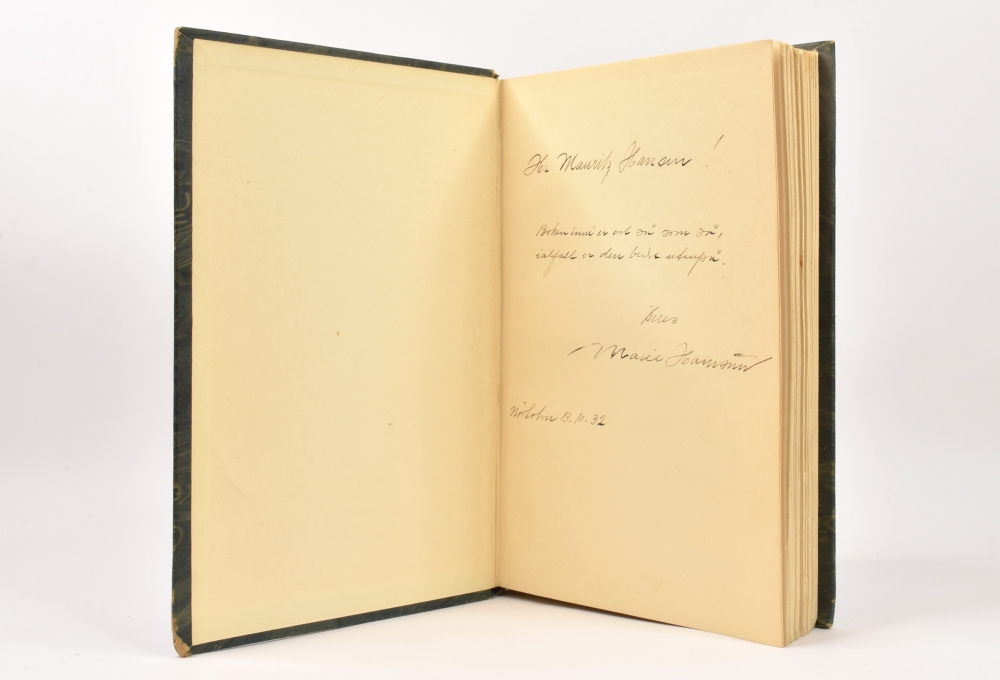 Hr Mauritz Hansen!
Boken inni er vel så som så,
ialfall er den bedre utenpå.
Deres
Marie Hamsun
Nörholm 13.10.32